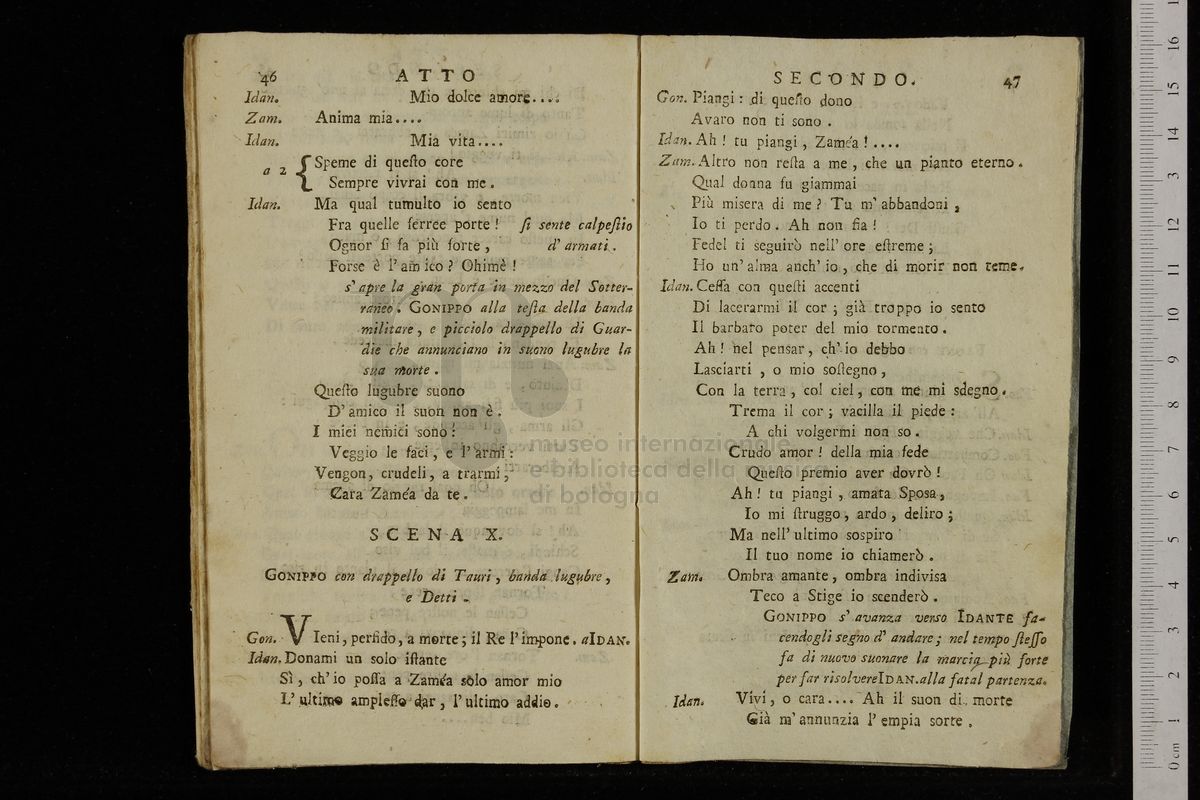 46 ATTO
Idan. Mio dolce amore....
Zam. Anima mia....
Idan. Mia vita....
a 2 { Speme di queſto core
Sempre vivrai con me.
Idan. Ma qual tumulto io sento
Fra quelle ferree porte! ſi sente calpeſtio
Ognor ſi fa più forte, d' armati.
Forse è l'amico? Ohimè!
s' apre la gran porta in mezzo del Sotter-
raneo. GONIPPO alla teſta della banda
militare, e picciolo drappello di Guar-
die che annunciano in suono lugubre la
sua morte.
Queſto lugubre suono
D' amico il suon non è.
I miei nemici sono:
Veggio le faci, e l'armi:
Vengon, crudeli, a trarmi,
Cara Zaméa da te.
SCENA X.
GONIPPO con drappello di Tauri, banda lugubre,
e Detti.
Gon. VIeni, perfido, a morte; il Re l'impone. aIDAN.
Idan. Donami un solo iſtante
Sì, ch'io poſſa a Zaméa solo amor mio
L'ultimo ampleſſo dar, l'ultimo addio.
SECONDO. 47
Gon. Piangi: di queſto dono
Avaro non ti sono.
Idan. Ah! tu piangi, Zaméa!....
Zam. Altro non reſta a me, che un pianto eterno.
Qual donna fu giammai
Più misera di me? Tu m' abbandoni,
Io ti perdo. Ah non fia!
Fedel ti seguirò nell' ore eſtreme;
Ho un' alma anch' io, che di morir non teme.
Idan. Ceſſa con queſti accenti
Di lacerarmi il cor; già troppo io sento
Il barbaro poter del mio tormento.
Ah! nel pensar, ch' io debbo
Lasciarti, o mio soſtegno,
Con la terra, col ciel, con me mi sdegno.
Trema il cor; vacilla il piede:
A chi volgermi non so.
Crudo amor! della mia fede
Queſto premio aver dovrò!
Ah! tu piangi, amata Sposa,
Io mi ſtruggo, ardo, deliro;
Ma nell' ultimo sospiro
Il tuo nome io chiamerò.
Zam. Ombra amante, ombra indivisa
Teco a Stige io scenderò.
GONIPPO s' avanza verso IDANTE fa-
cendogli segno d' andare; nel tempo ſteſſo
fa di nuovo suonare la marcia più forte
per far risolvere IDAN. alla fatal partenza.
Idan. Vivi, o cara.... Ah il suon di morte
Già m' annunzia l' empia sorte.
museo internazionale
e biblioteca della musica
di bologna
0 cm 1 2 3 4 5 6 7 8 9 10 11 12 13 14 15 16